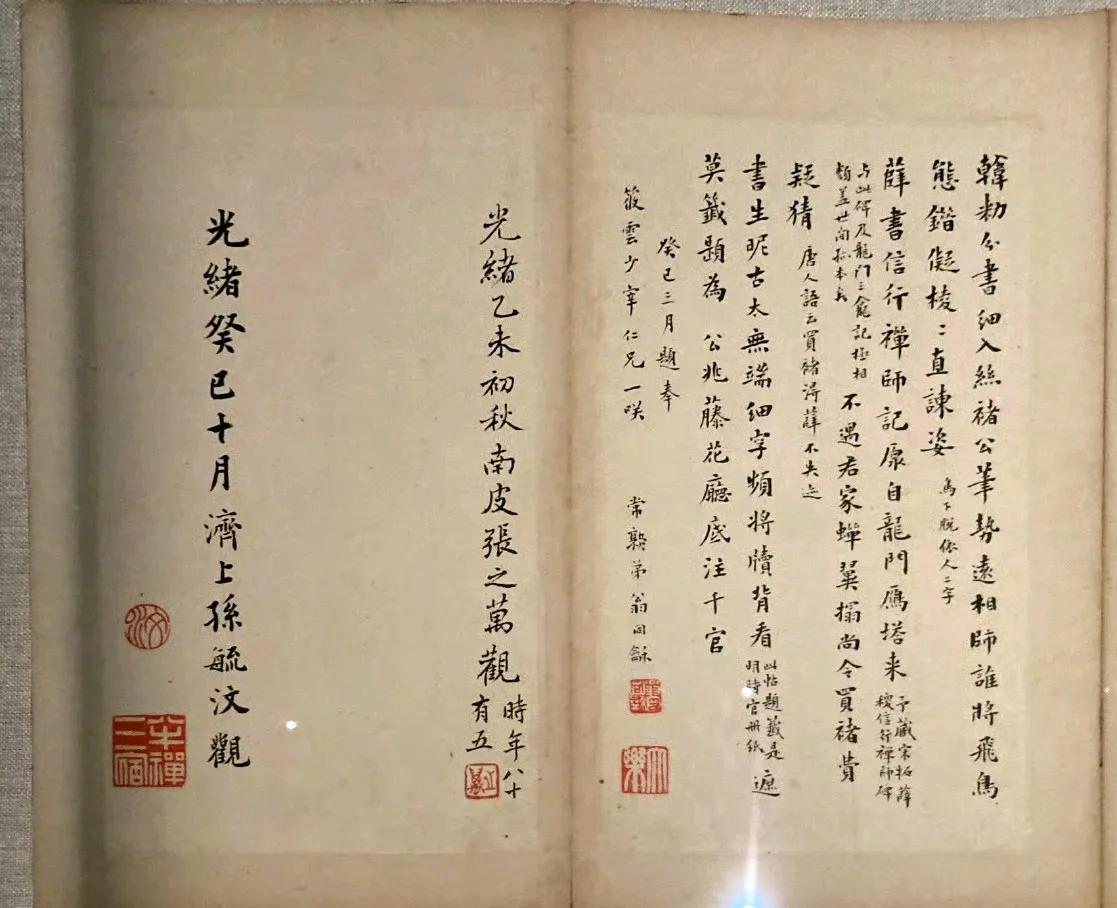 韓勑分書細入絲褚公筆勢遠相師誰將飛鳥
態鍇儗棱〻直諫姿 鳥下脫依人二字
薛書信行禪師記原自龍門鴈塔来 予藏宋拓薛
稷信行禪師碑
与此碑及龍門三龕記極相
類蓋世間孤本矣 不遇君家蟬翼搨尚令買褚費
疑猜 唐人語云買褚得薛不失
書生昵古太無端細字頻將牘背看 此帖題籖是
明時官冊紙 遮
莫籤題為 公兆藤花廳底注千官
癸巳三月題奉
筱雲少宰仁兄一咲 常熟弟翁同龢
光緒乙未初秋南皮張之萬觀 時年八十
有五
光緒癸巳十月濟上孫毓汶觀